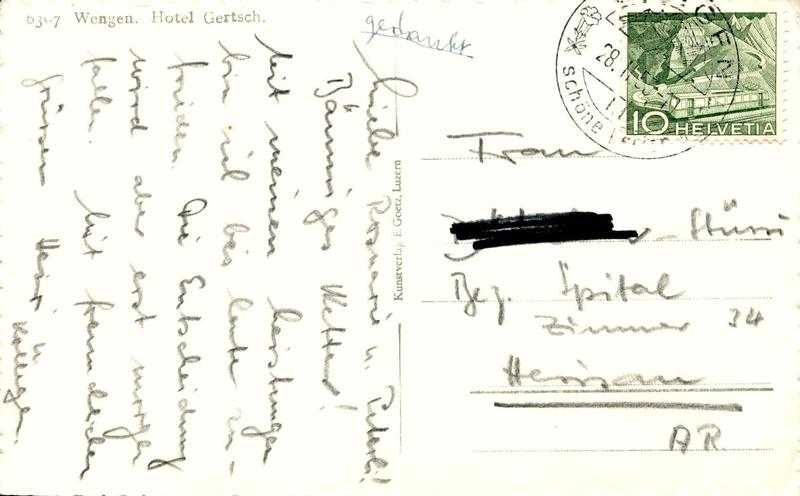 6307 Wengen. Hotel Gertsch.
gedankt
Liebe Rosmarie u. Peterli!
Bäumiges Wetter!
Mit meinen Leistungen
bin ich bis heute zu-
frieden. Die Entscheidung
wird aber erst morgen
fallen. Mit freundlichen
Grüssen Heiri u. Kollegen.
Kunstverlag E. Goetz, Luzern
WENGEN
28.
Schöne Ferien
10 HELVETIA
Frau
Stürm
Bez. Spital
Zimmer 34
Herisau
AR.